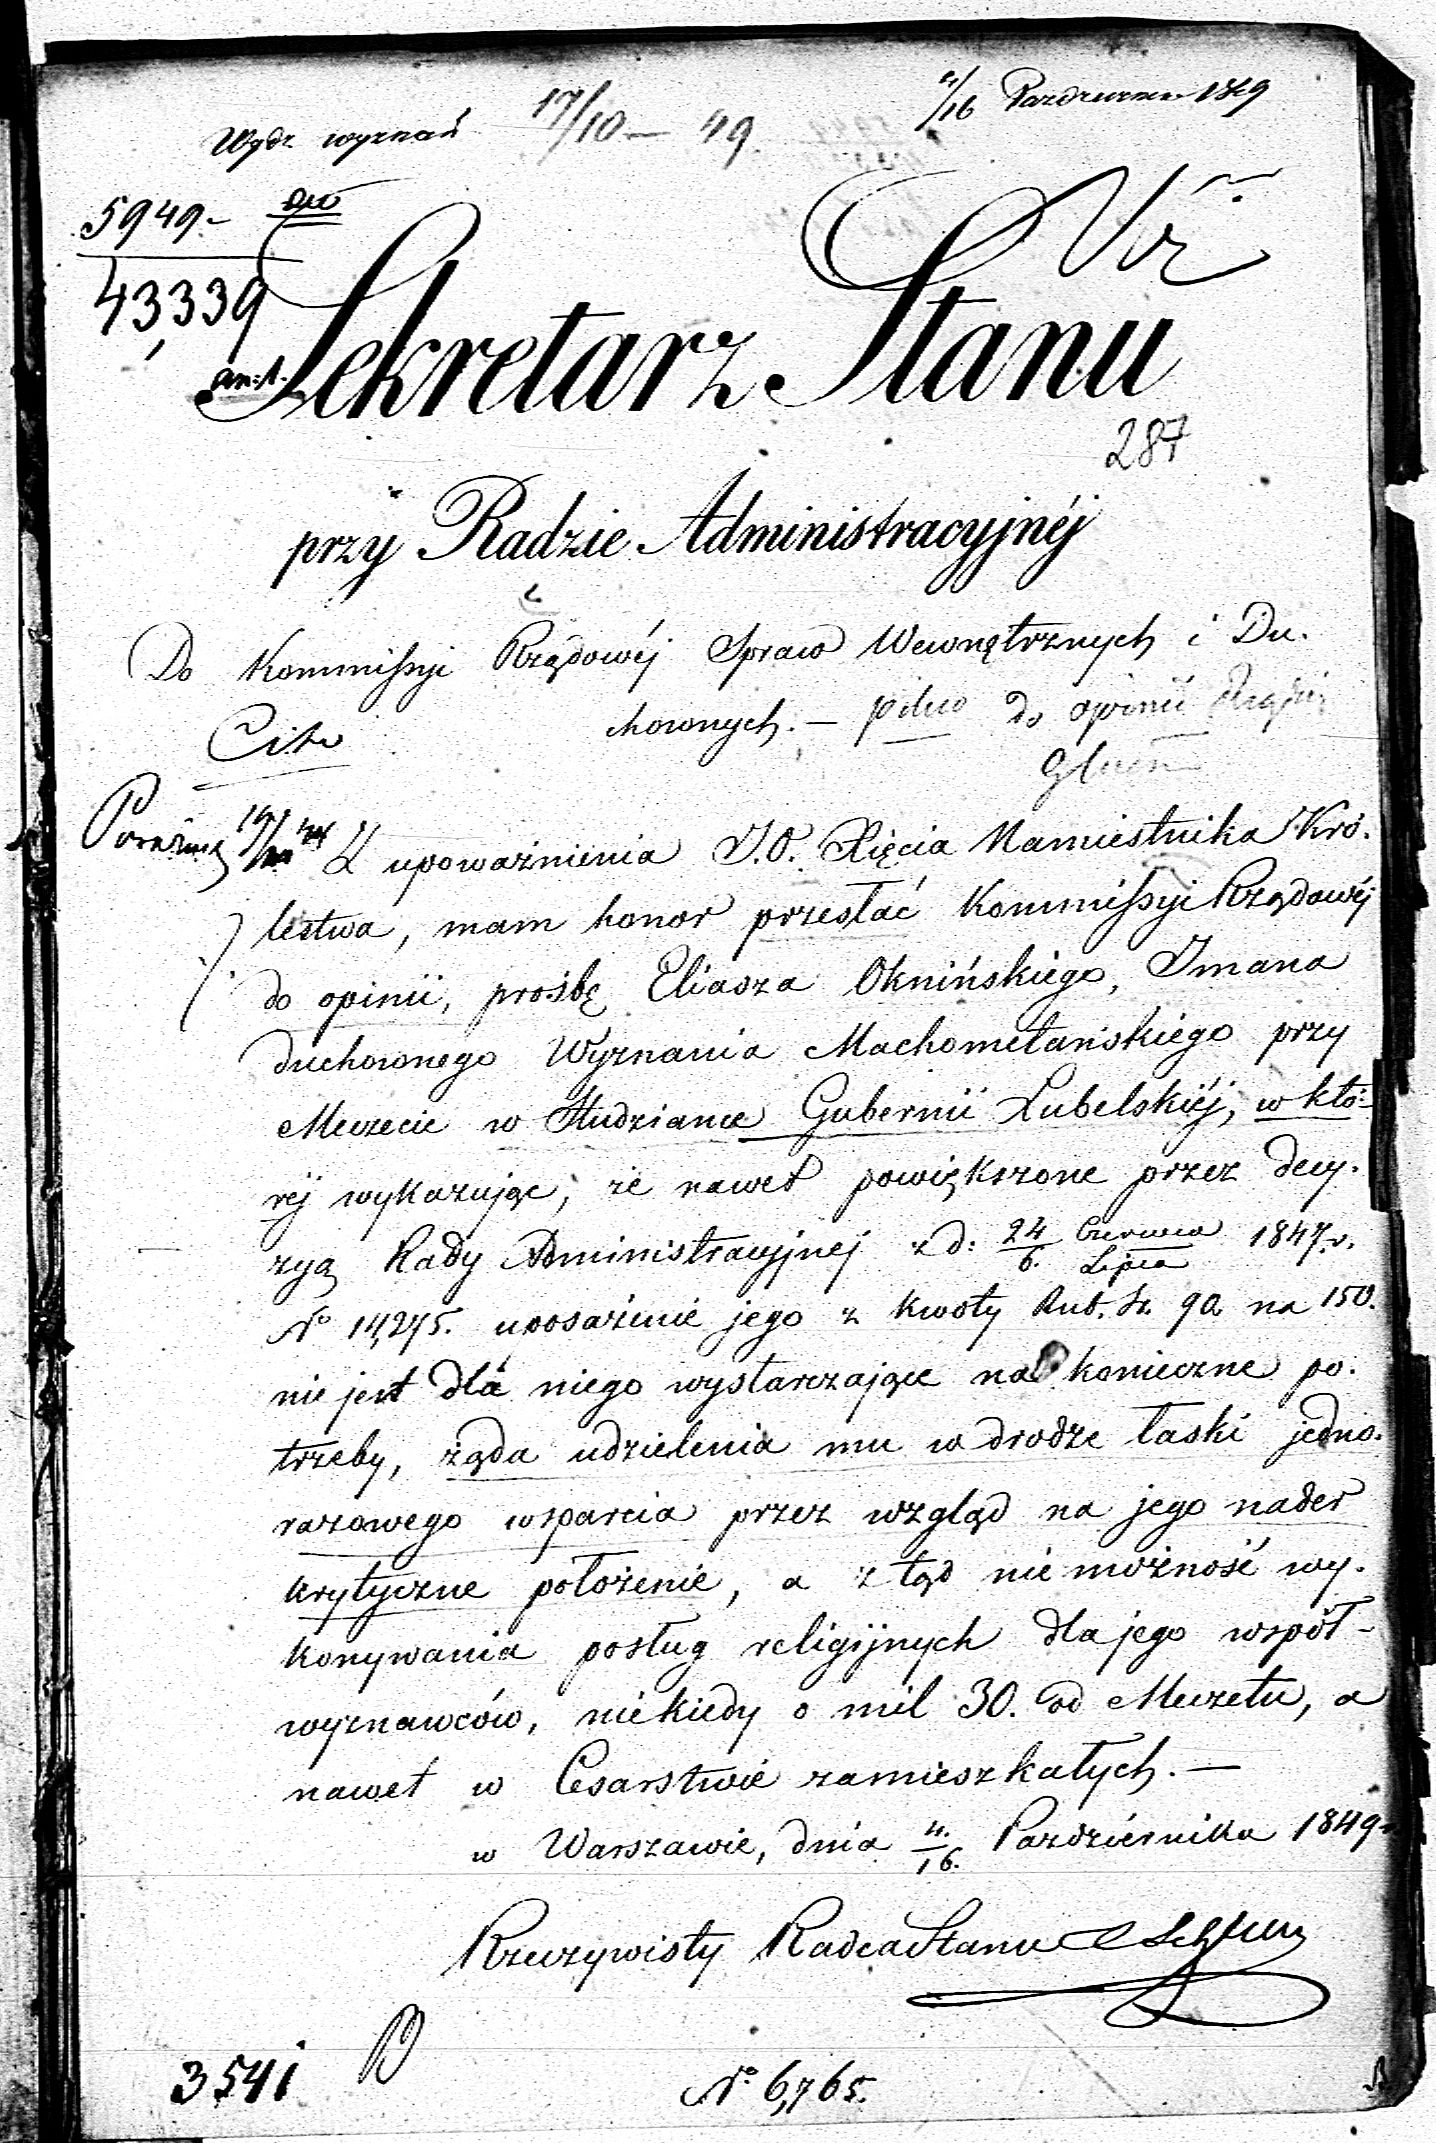 Wydz wyznań 17/10 – 49. 4/16 Października 1849
5949.
43,339
an: 1.
Sekretarz Stanu
287
przy Radzie Administracyjnéj
Do Kommissyi Rządowéj Spraw Wewnętrznych i Du-
chownych. – pilno do opinii
Cito
Z upoważnienia J.O. Xięcia Namiestnika Kró-
lestwa, mam honor przesłać Kommissyi Rządowéj
do opinii, prośbę Eliasza Oknińskiego, Imana
duchownego Wyznania Machometańskiego przy
Meczecie w Studziance Gubernii Lubelskiéj, w któ-
réj wykazując, że nawet powiększone przez decy-
zyą Rady Administracyjnej z d: 24/6. Czerwca/Lipca 1847. r.
No 14,275. uposażenie jego z kwoty Rub. Sr. 90 na 150.
nie jest dla niego wystarczające na konieczne po-
trzeby, żąda udzielenia mu w drodze łaski jedno-
razowego wsparcia przez wzgląd na jego nader
krytyczne położenie, a ztąd niemożność wy-
konywania posług religijnych dla jego współ-
wyznawców, niekiedy o mil 30. od Meczetu, a
nawet w Cesarstwie zamieszkałych. –
w Warszawie, dnia 4./16. Października 1849
Rzeczywisty Radca Stanu
3541
No 6,765.